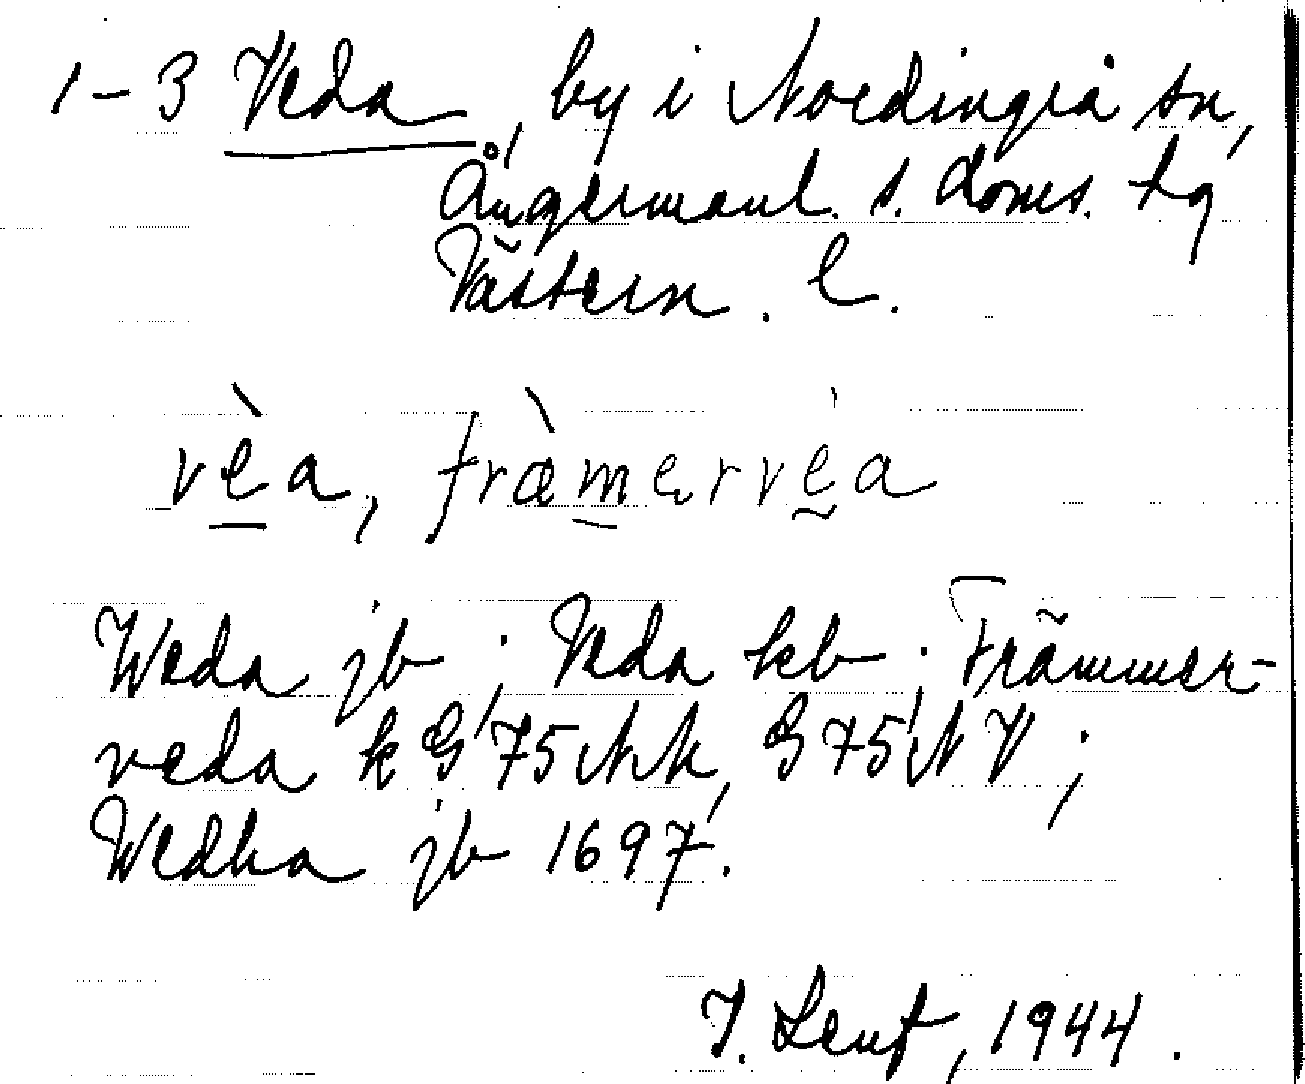 1-3 Veda, by i Nordingrå sn,
Ångermanl. s. doms. tg
Västern. l.
vèa, fræ̀mervéa
Weda jb; Veda kb; Främmer-
veda k G 75 NK, G 75 NV;
Wedha jb 1697.
I. Lenf, 1944.